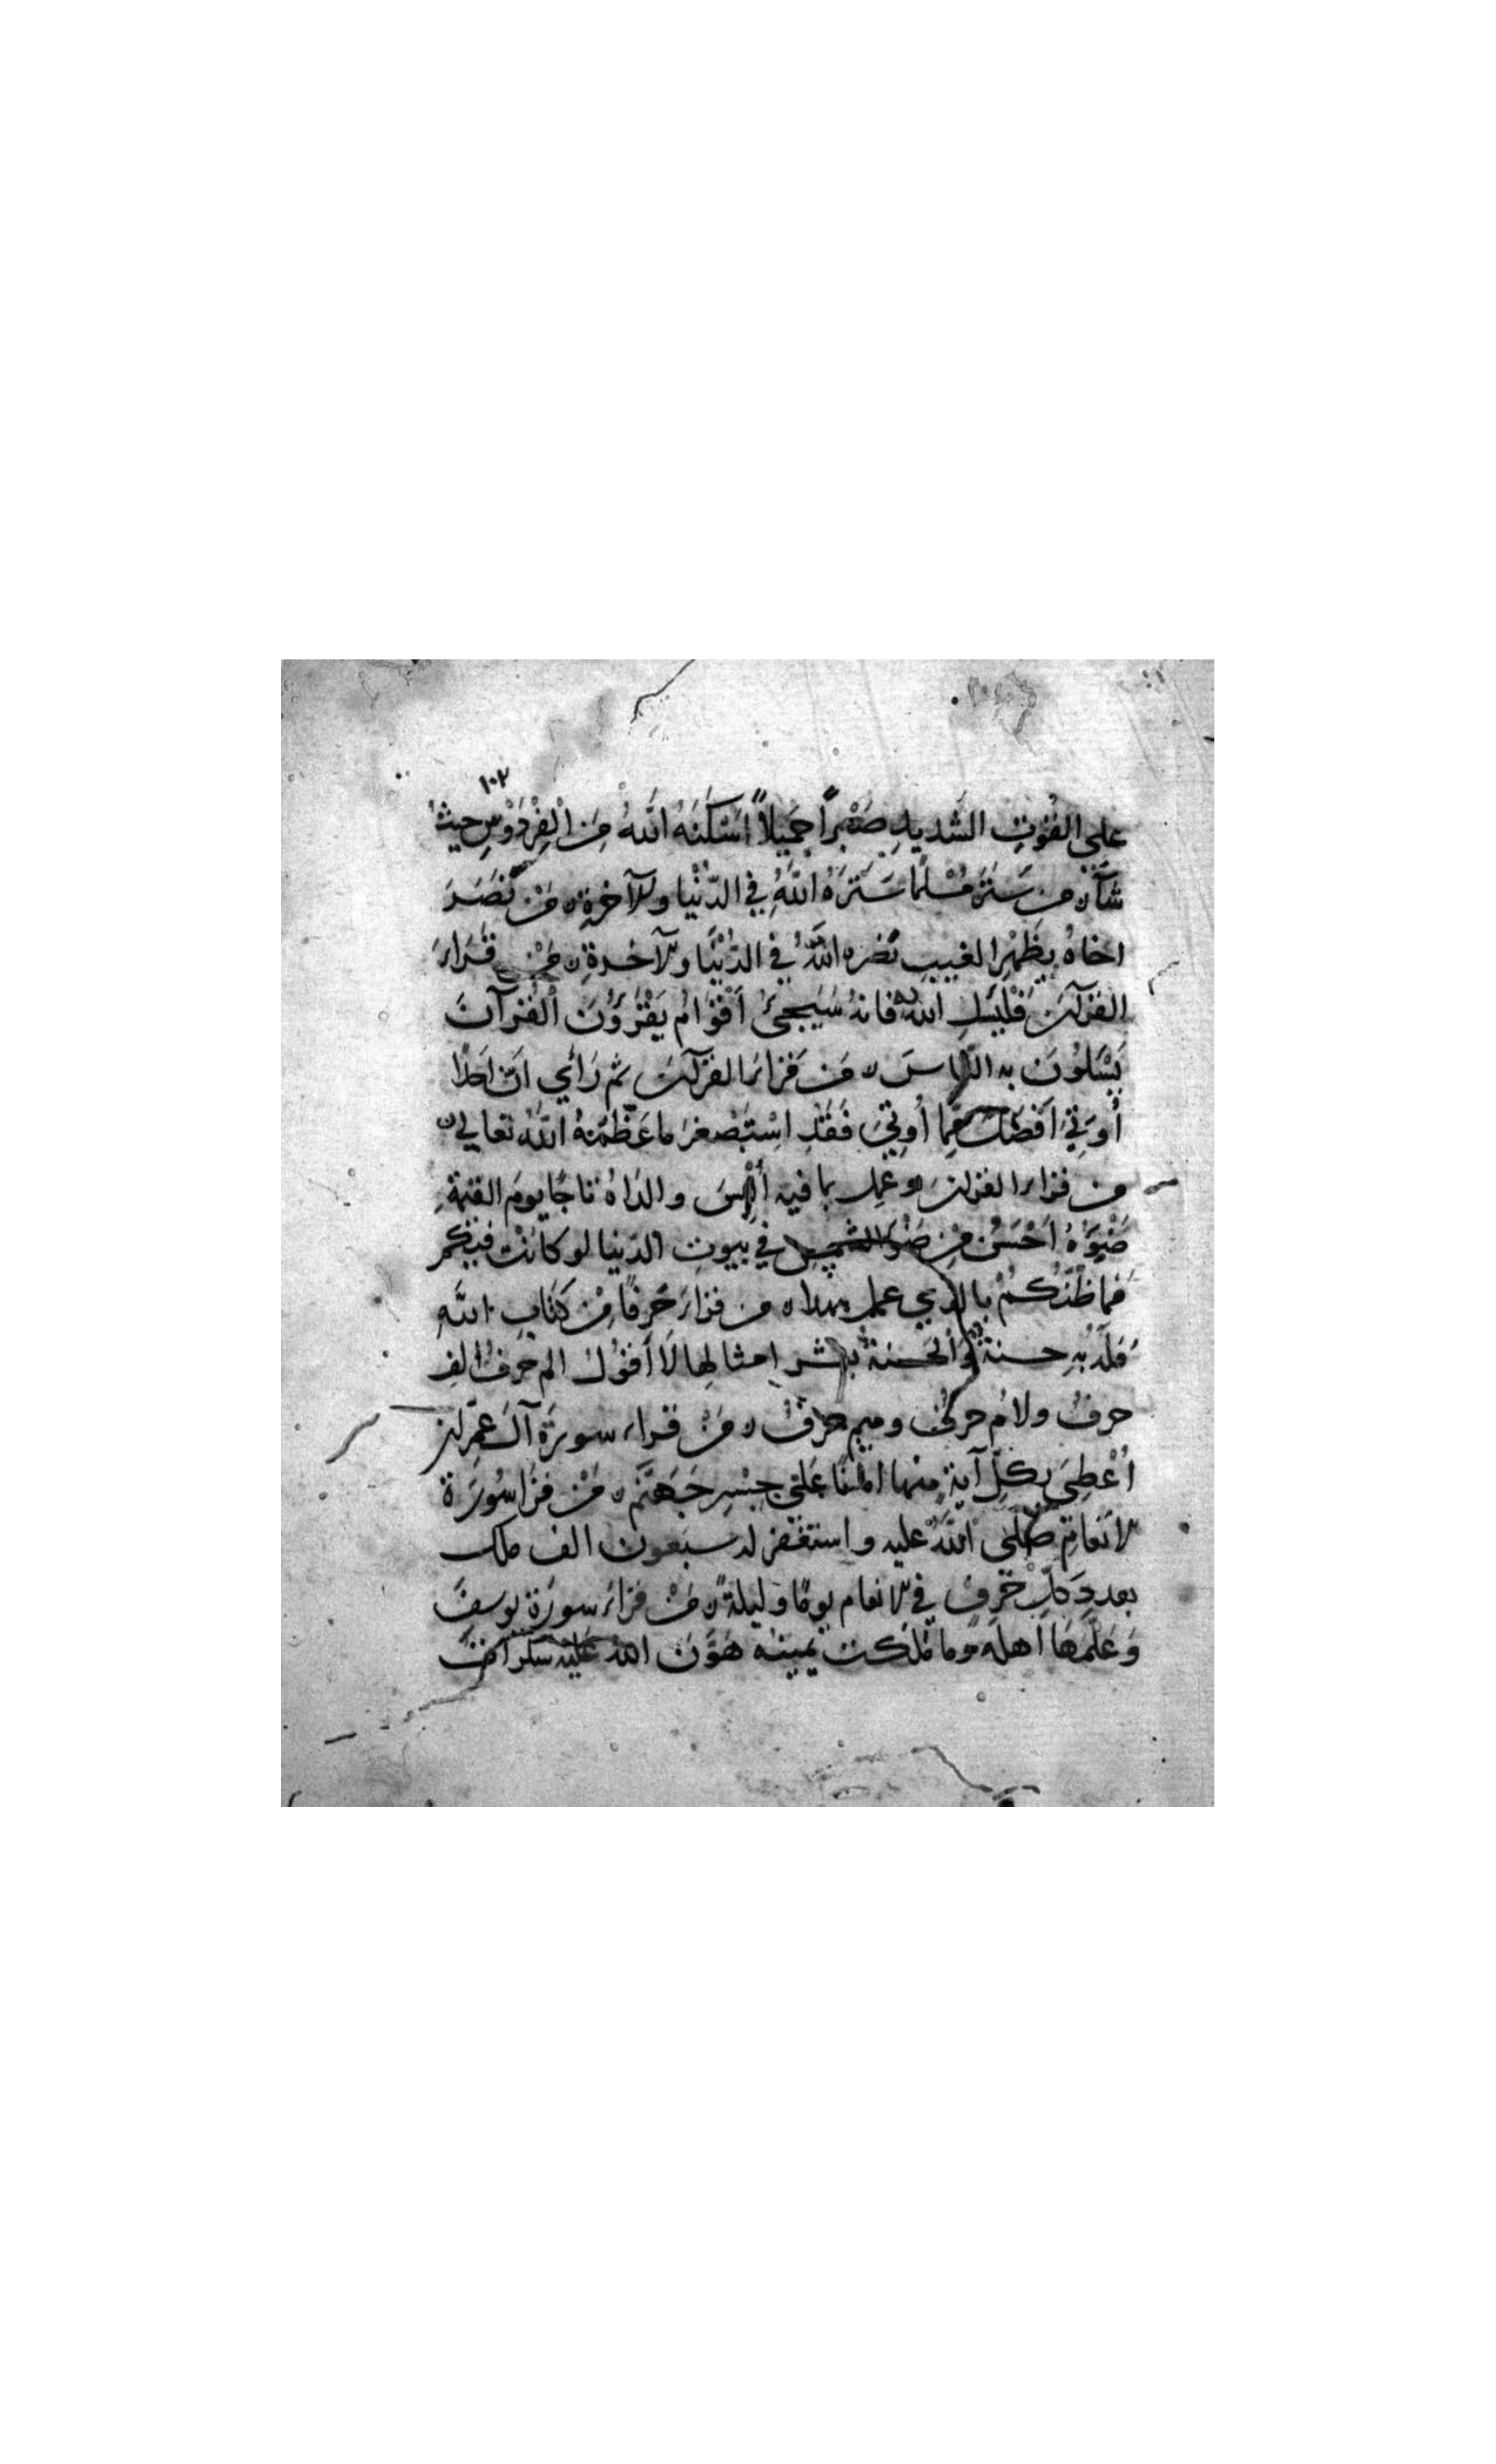 ١٠٢
على القوتِ الشديدِ صَبْراً جَمِيلاً اَسْكَنَهُ اللهُ مِنَ الْفِرْدَوْسِ حيثُ
شآء ں من سَتَرَ مُسْلِمًا سَتَرَهُ اللهُ في الدُّنْيا والآخرةِ ں مَنْ نَصَرَ
اخاهُ بِظَهْرِ الغيبِ نَصَره اللهُ في الدُّنْيَا والآخرةِ ں مَنْ قَرَاءَ
القرآنَ فَلْيَسَلِ اللهَ فانهُ سَيَجِيُ اَقْوَامٌ يَقْرَؤُنَ الْقُرْآنَ
يَسْئلُونَ به النّاسَ ں مَن قَراءَ القرآنَ ثم رَأي انّ اَحَدًا
أُوتِيَ اَفضلَ مِمّا أُوتِيَ فَقَدِ اسْتَصْغرَ ما عَظَّمَهُ اللهُ تعالى ں
من قراءَ القرآنَ وعَمِلَ بما فيه أُلْبِسَ والدَاهُ تاجًا يومَ القيمةِ
ضَوْؤُهُ اَحْسَنُ مِنْ ضَوْءِ الشمسِ في بُيوتِ الدنيا لو كانَتْ فيكم
فما ظَنُّكُمْ بالذي عمل بهذا ں من قراءَ حَرفًا مِنْ كتابِ اللهِ
فلَهُ بهِ حسنةٌ والحسنةُ بعشرِ امثالِها لَا اَقولُ الم حرفٌ الفٌ
حرفٌ ولامٌ حرفٌ وميم حرفٌ ں مَنْ قراءَ سورَةَ آل عِمْرانَ
اُعْطِيَ بكلِّ آيةٍ منها امانًا عَلى جِسْرِ جَهَنَّم ں مَنْ قرَا سُورَةَ
الانعامِ صَلَّى اللهُ عليه واستغفر له سبعون الف ملك
بعددِ كلِّ حَرفٍ في الانعام يومًا وليلةً ں مَنْ قراءَ سورَةَ يوسفَ
وَعَلَّمَهَا اَهلَه وما ملكت يمينه هَوَّنَ اللهُ عَلَيْهِ سكرات